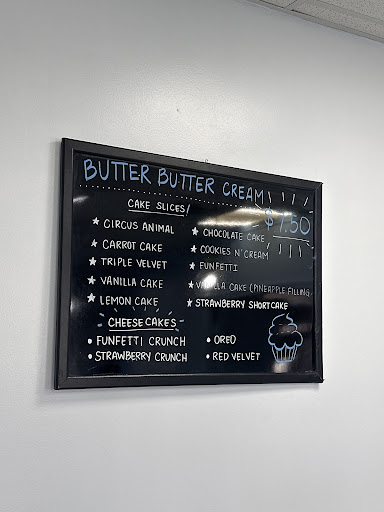 BUTTER BUTTER CREAM
CAKE SLICES/
$7.50
★ CIRCUS ANIMAL
★ CARROT CAKE
★ TRIPLE VELVET
★ VANILLA CAKE
★ LEMON CAKE
★ CHOCOLATE CAKE
★ COOKIES N' CREAM
★ FUNFETTI
★ VANILLA CAKE (PINEAPPLE FILLING
★ STRAWBERRY SHORTCAKE
CHEESECAKES
• FUNFETTI CRUNCH
• STRAWBERRY CRUNCH
• OREO
• RED VELVET